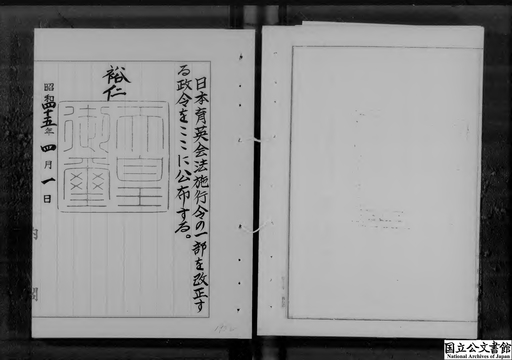 日本育英会法施行令の一部を改正す
る政令をここに公布する。
裕仁
天皇
御璽
昭和四十五年四月一日
内閣
国立公文書館
National Archives of Japan